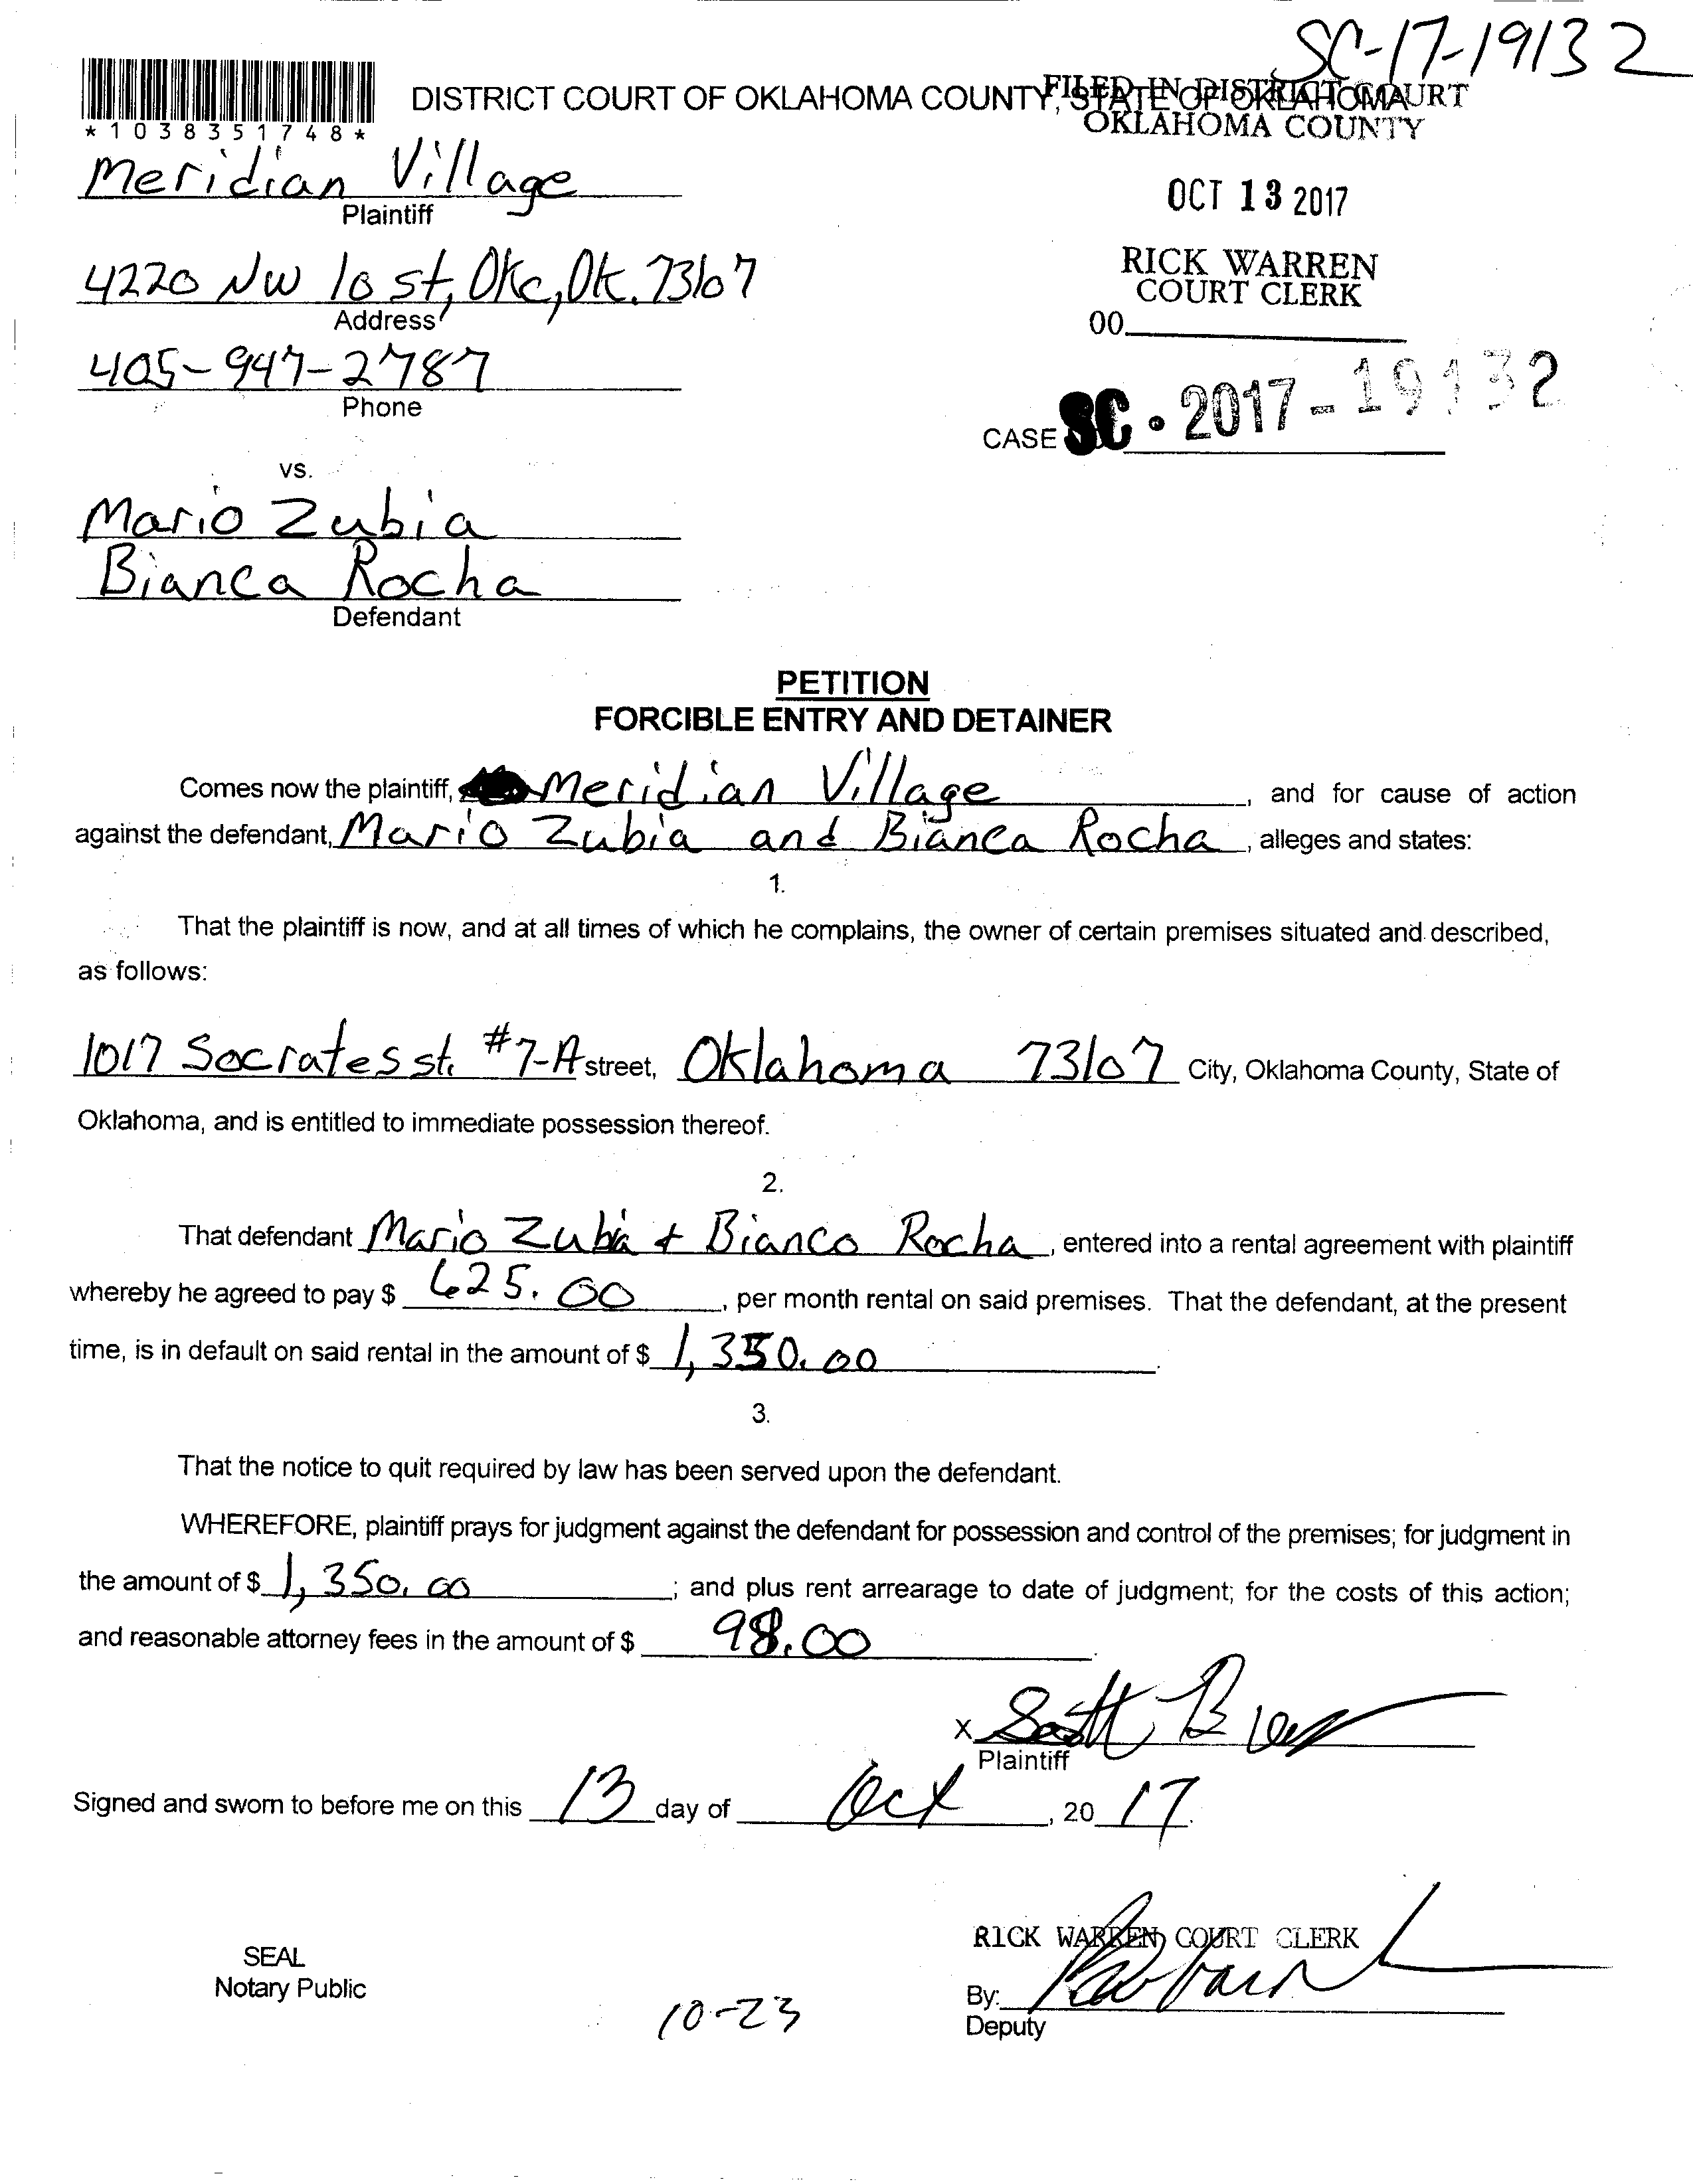 SC-17-19132
DISTRICT COURT OF OKLAHOMA COUNTY, STATE OF OKLAHOMA
FILED IN DISTRICT COURT
OKLAHOMA COUNTY
*1038351748*
Meridian Village
Plaintiff
OCT 13 2017
4220 NW 10 st, Okc, Ok. 73107
Address
RICK WARREN
COURT CLERK
00
405-947-2787
Phone
CASE SC - 2017 - 19132
vs.
Mario Zubia
Bianca Rocha
Defendant
PETITION
FORCIBLE ENTRY AND DETAINER
Comes now the plaintiff, Meridian Village, and for cause of action
against the defendant, Mario Zubia and Bianca Rocha, alleges and states:
1.
That the plaintiff is now, and at all times of which he complains, the owner of certain premises situated and described,
as follows:
1017 Socrates st. #7-A street, Oklahoma 73107 City, Oklahoma County, State of
Oklahoma, and is entitled to immediate possession thereof.
2.
That defendant Mario Zubia + Bianco Rocha, entered into a rental agreement with plaintiff
whereby he agreed to pay $ 625.00, per month rental on said premises. That the defendant, at the present
time, is in default on said rental in the amount of $ 1,350.00.
3.
That the notice to quit required by law has been served upon the defendant.
WHEREFORE, plaintiff prays for judgment against the defendant for possession and control of the premises; for judgment in
the amount of $ 1,350.00; and plus rent arrearage to date of judgment; for the costs of this action;
and reasonable attorney fees in the amount of $ 98.00.
X Scott
Plaintiff
Signed and sworn to before me on this 13 day of Oct, 2017.
RICK WARREN, COURT CLERK
SEAL
Notary Public
By:
Deputy
10-23